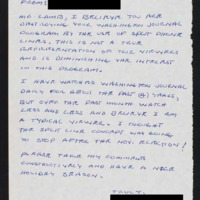 MR LAMB, I BELIEVE YOU ARE
DESTROYING YOUR WASHINGTON JOURNAL
PROGRAM BY THE USE OF SPLIT PHONE
LINES. THIS IS NOT A TRUE
REPRESENTATION OF THE VIEWERS
AND IS DIMINISHING OUR INTEREST
IN THIS PROGRAM.
I HAVE WATCHED WASHINGTON JOURNAL
DAILY FOR THE PAST YEARS,
BUT OVER THE PAST MONTH WATCH
LESS AND LESS AND BELIEVE I AM
A TYPICAL VIEWER. I THOUGHT
THE SPLIT LINE CONCEPT WAS GOING
TO STOP AFTER THE NOV. ELECTION!
PLEASE TAKE MY COMMENTS
CONSTRUCTIVELY AND HAVE A NICE
HOLIDAY SEASON.